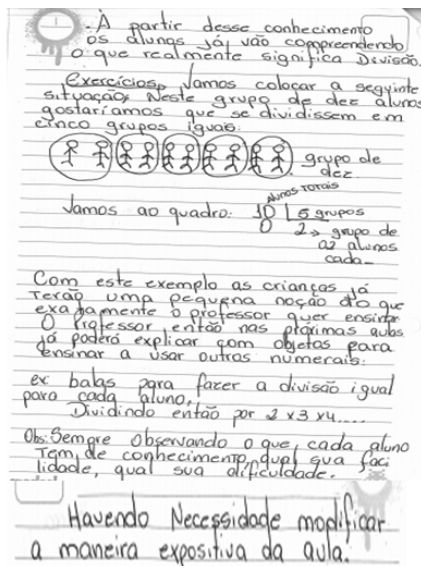 . À partir desse conhecimento
os alunos já vão compreendendo
o que realmente significa Divisão.
Exercícios, Vamos colocar a seguinte
situação, Neste grupo de dez alunos
gostaríamos que se dividissem em
cinco grupos iguais:
grupo de
dez
Alunos Totais
Vamos ao quadro: 10 | 5 grupos
0 2 → grupo de
02 alunos
cada_
Com este exemplo as crianças já
terão uma pequena noção do que
exatamente o professor quer ensinar
O Professor então nas próximas aulas
já poderá explicar com objetos para
ensinar a usar outros numerais:
ex: balas para fazer a divisão igual
para cada aluno,
Dividindo então por 2 x 3 x 4.....
Obs: Sempre Observando o que, cada aluno
Tem, de conhecimento, qual sua faci
lidade, qual sua dificuldade.
Havendo Necessidade modificar
a maneira expositiva da aula.